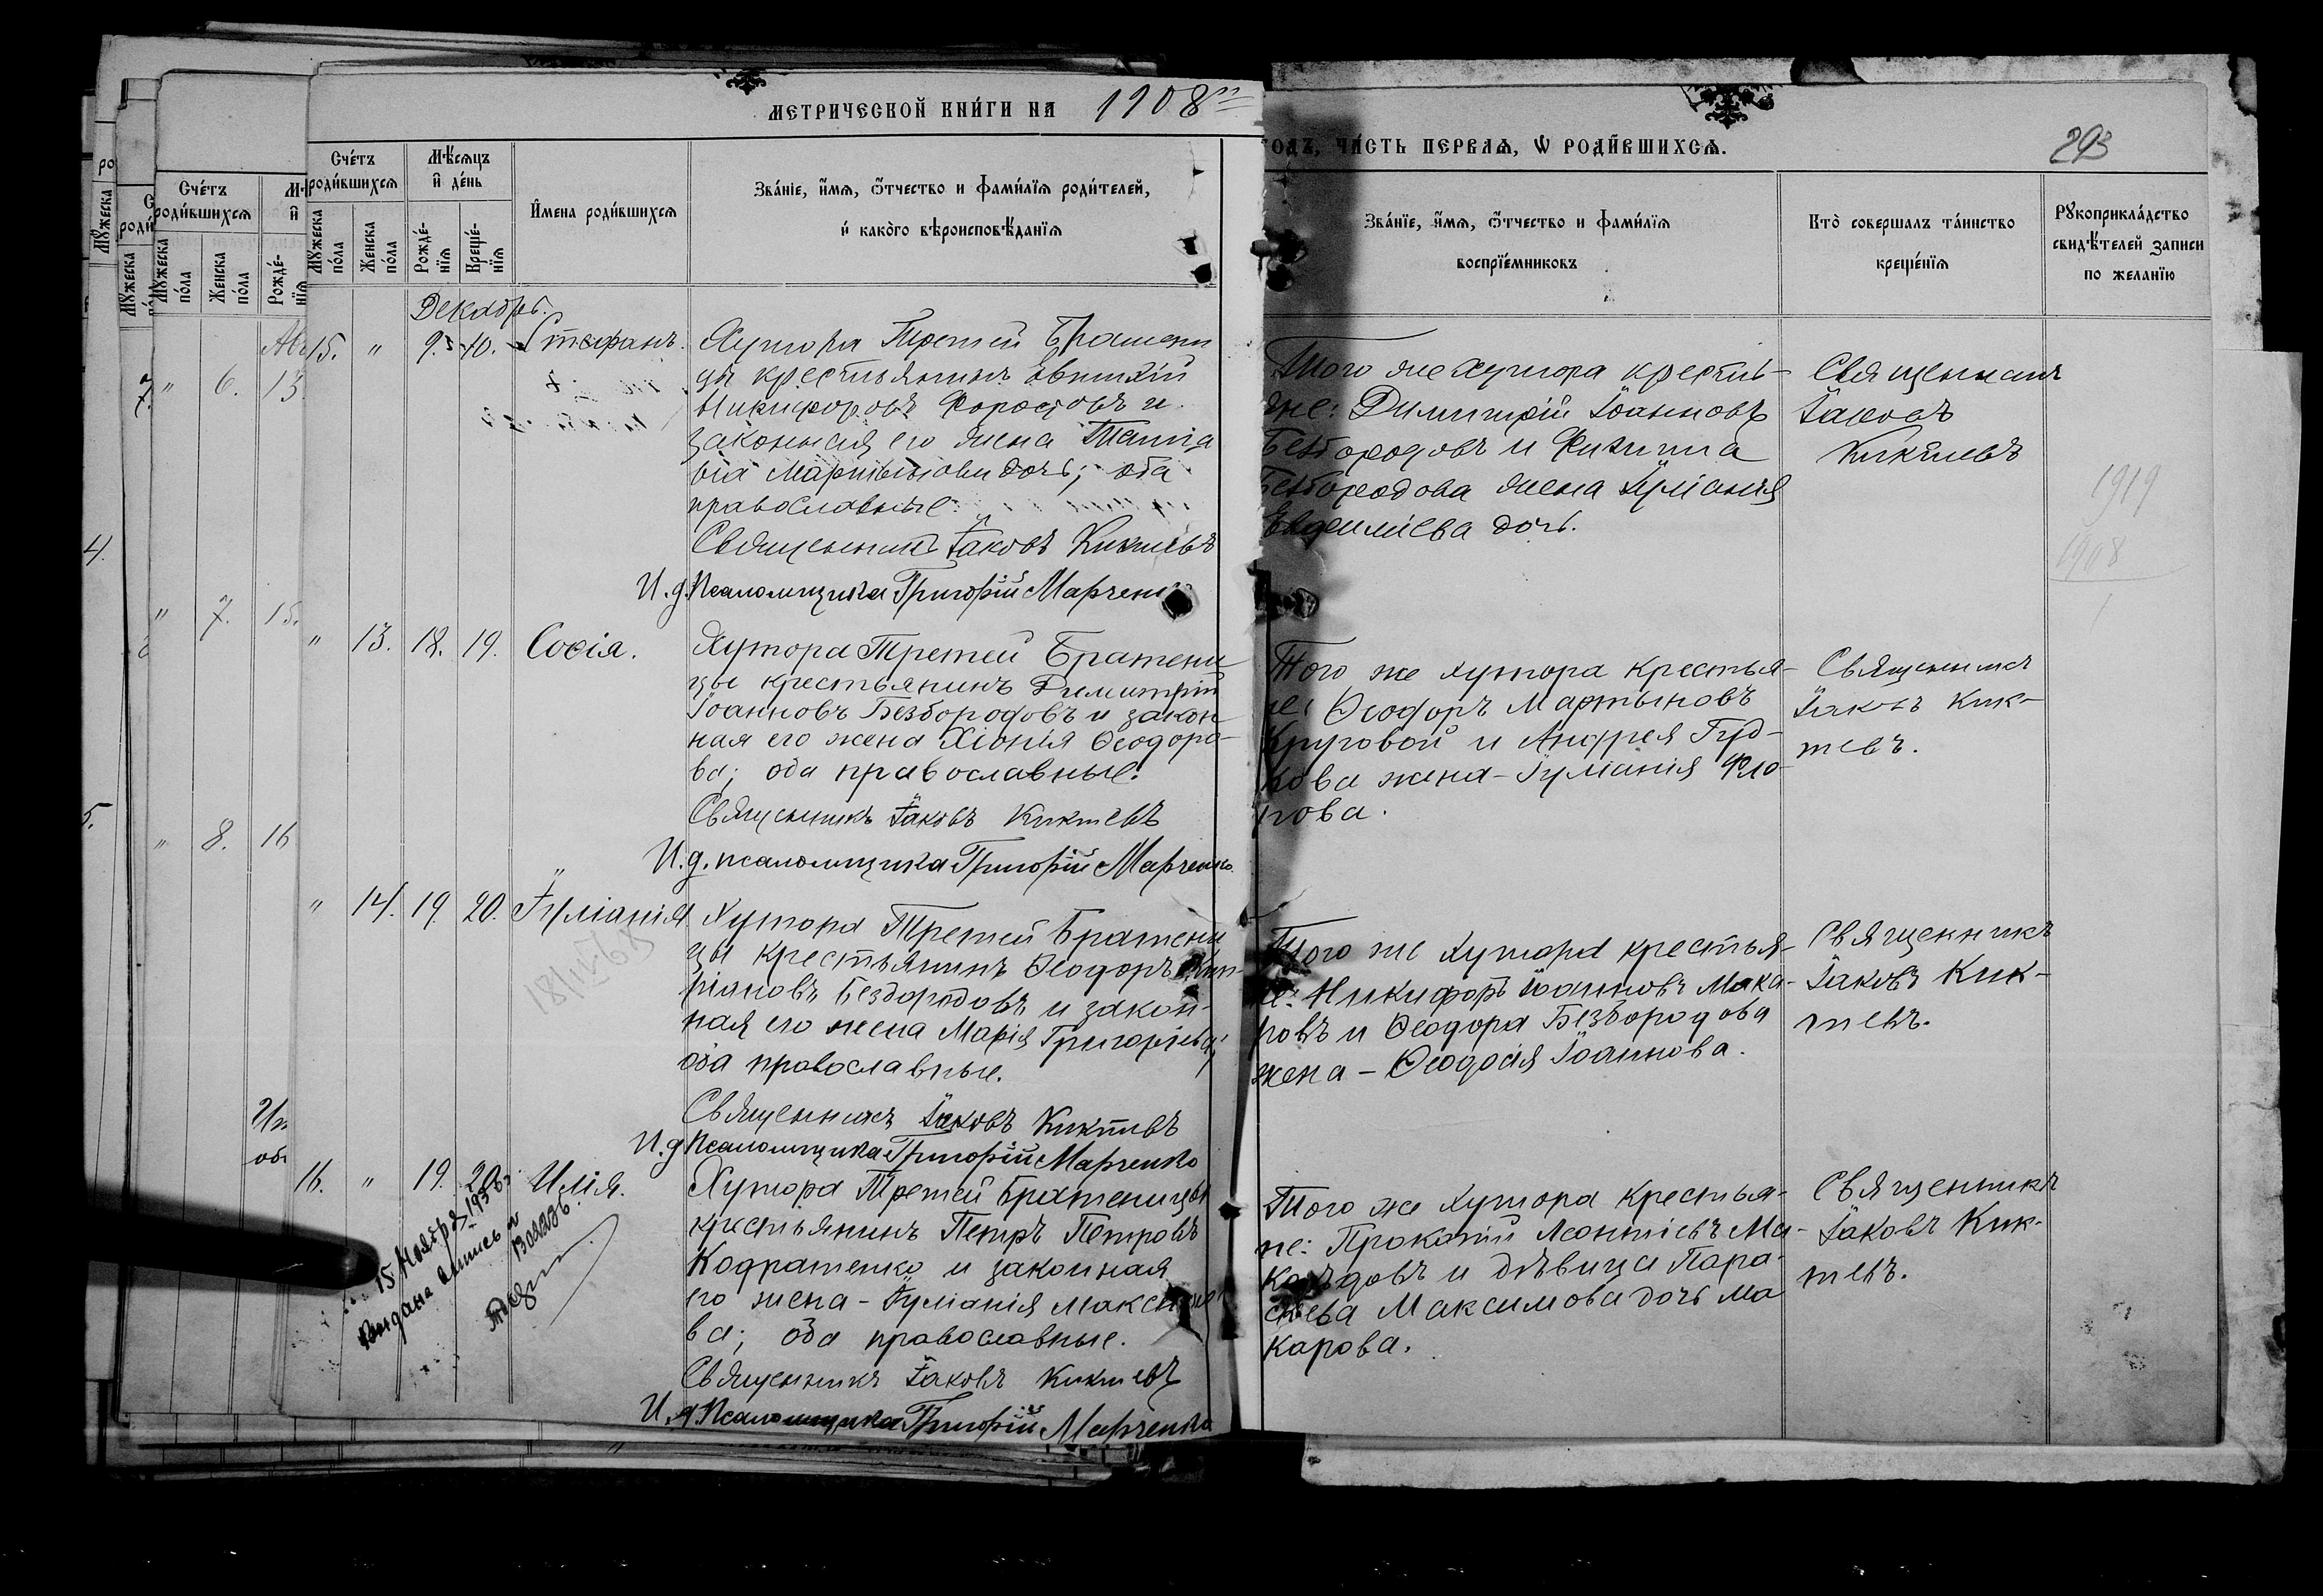 МЕТРИЧЕСКОЙ КНИ́ГИ НА 1908
ГОДЪ, ЧА́СТЬ ПЕРВАѦ, Ѡ РОДИ́ВШИХСѦ.
293
Сче́тъ родившихсѧ
Мѣ́сѧцъ и де́нь
Имена роди́вшихсѧ
Зва́нїе, и́мѧ, ѻ҆́тчество и фами́лїѧ роди́телей,
и како́го вѣроисповѣ́данїѧ
Зва́нїе, и́мѧ, ѻ҆́тчество и фами́лїѧ
воспрїе́мниковъ
Кто̀ совершалъ та́инство
креще́нїѧ
Рꙋкоприкла́дство
свидѣ́телей записи
по желанїю
Мꙋжеска по́ла
Женска по́ла
Рожде́-нїѧ
Креще́-нїѧ
Декабрь.
15. " 9. 10. Стефанъ.
Хутора Третей Братени
цы крестьянинъ
Никифоровъ и
законная его жена
дочь; оба
православные.
Священникъ Іаковъ Киктевъ
И. д. Псаломщика Григорій Марченко
Того же хутора крестья-
не: Димитрій Іоанновъ
Безбородовъ и Филиппа
Безбородова жена Іуліанія
дочь.
Священникъ
Іаковъ
Киктевъ
1919
1908
" 13. 18. 19. Софія.
Хутора Третей Братени
цы крестьянинъ Димитрій
Іоанновъ Безбородовъ и закон
ная его жена Хіонія Ѳеодоро-
ва; оба православные.
Священникъ Іаковъ Киктевъ
И. д. псаломщика Григорій Марченко.
Того же хутора крестья-
не: Ѳеодоръ Мартыновъ
Круговой и Андрея Гуд-
кова жена - Іуліанія Фло-
рова.
Священникъ
Іаковъ Кик-
тевъ.
" 14. 19. 20. Іуліанія
Хутора Третей Братени
цы крестьянинъ Ѳеодоръ Кип-
ріановъ Безбородовъ и закон-
ная его жена Марія Григоріева;
оба православные.
Священникъ Іаковъ Киктевъ
И. д Псаломщика Григорій Марченко
Того же хутора крестья-
не: Никифоръ Іоанновъ Мака-
ровъ и Ѳеодора Безбородова
жена - Ѳеодосія Іоаннова.
Священникъ
Іаковъ Кик-
тевъ.
16. " 19. 20. Илія.
Хутора Третей Братеницы
крестьянинъ Петръ Петровъ
Кодратенко и законная
его жена - Іуліанія Максимо
ва; оба православные.
Священникъ Іаковъ Киктевъ
И. д Псаломщика Григорій Марченко
Того же хутора крестья-
не: Прокопій Леонтіевъ Ма-
и дѣвица Пара-
скева Максимова дочь Ма
карова.
Священникъ
Іаковъ Кик-
тевъ.
15 Ноября 1936
Выдана
7. " 6. 13
" 7. 15.
" 8. 16
4.
5.